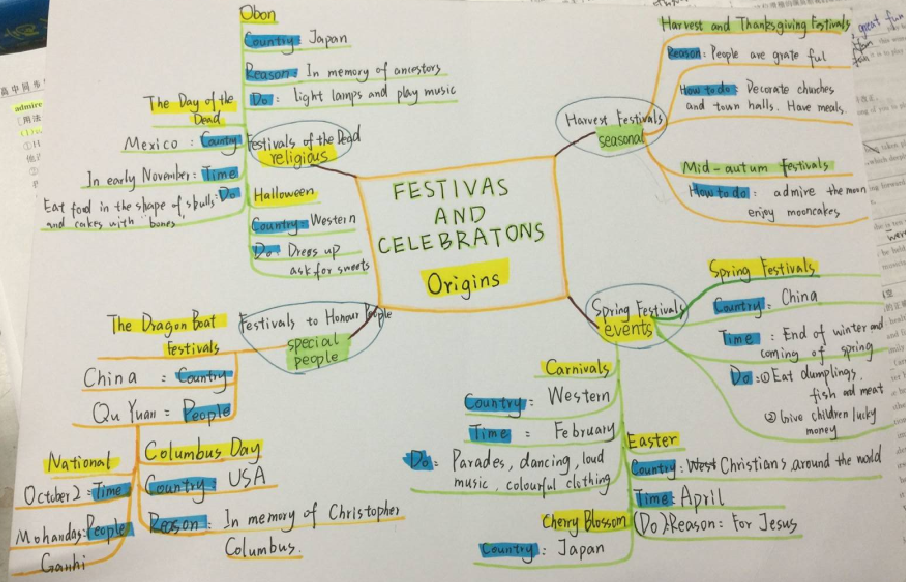 FESTIVAS
AND
CELEBRATONS
Origins
Festivals of the Dead
religious
Obon
Country: Japan
Reason: In memory of ancestors
Do: light lamps and play music
The Day of the
Dead
Mexico: Country
In early November: Time
Eat food in the shape of skulls: Do
and cakes with "bones"
Halloween
Country: Western
Do: Dress up
ask for sweets
Harvest Festivals
seasonal
Harvest and Thanksgiving Festivals
Reason: People are grate ful
How to do: Decorate churches
and town halls. Have meals.
Mid-autum festivals
How to do: admire the moon
enjoy mooncakes
Festivals to Honour People
special
people
The Dragon Boat
Festivals
China : Country
Qu Yuan : People
National
October 2: Time
Mohandas: People
Ganhi
Columbus Day
Country: USA
Reason: In memory of Christopher
Columbus.
Spring Festivals
events
Spring Festivals
Country: China
Time : End of winter and
coming of spring
Do: ① Eat dumplings,
fish and meat
② Give children lucky
money
Carnivals
Country: Western
Time : February
Do: Parades, dancing, loud
music, colourful clothing
Easter
Country: West Christians around the world
Time: April
(Do) Reason: For Jesus
Cherry Blossom
Country: Japan
高中同步
admire
great fun